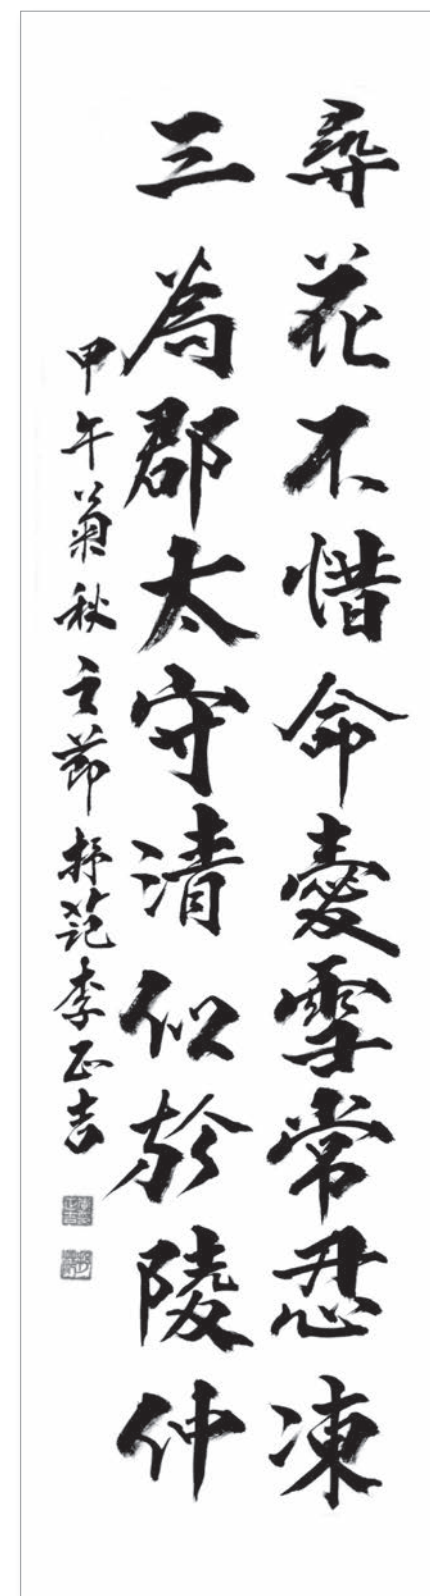 尋花不惜命愛雪常忍凍
三為郡太守清似於陵仲
甲午菊秋之節抒范李正吉